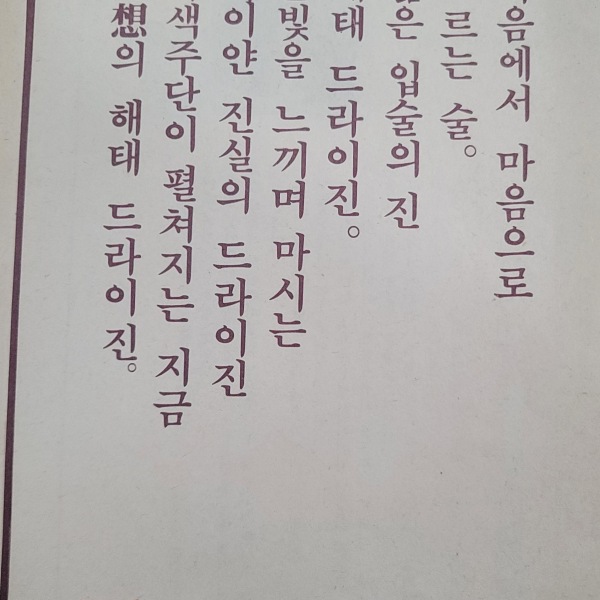 음에서 마음으로
르는 술。
은 입술의 진
태 드라이진。
빛을 느끼며 마시는
이얀 진실의 드라이진
색주단이 펼쳐지는 지금
想의 해태 드라이진。